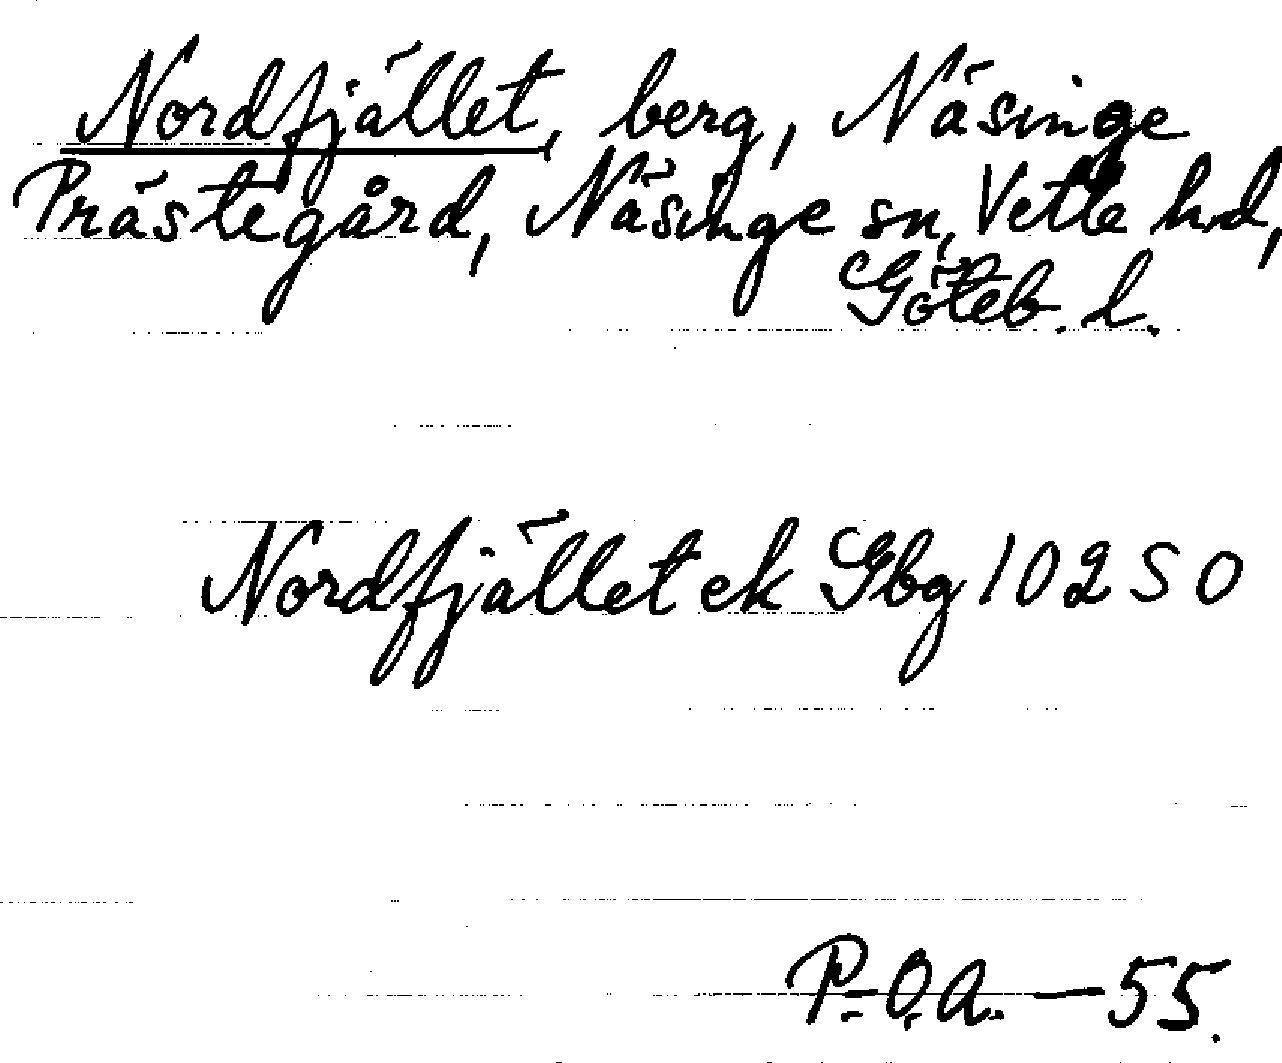 Nordfjället, berg, Näsinge
Prästegård, Näsinge sn, Vette hd,
Göteb. l.
Nordfjället ek Gbg 10250
P.-O.A. — 55.